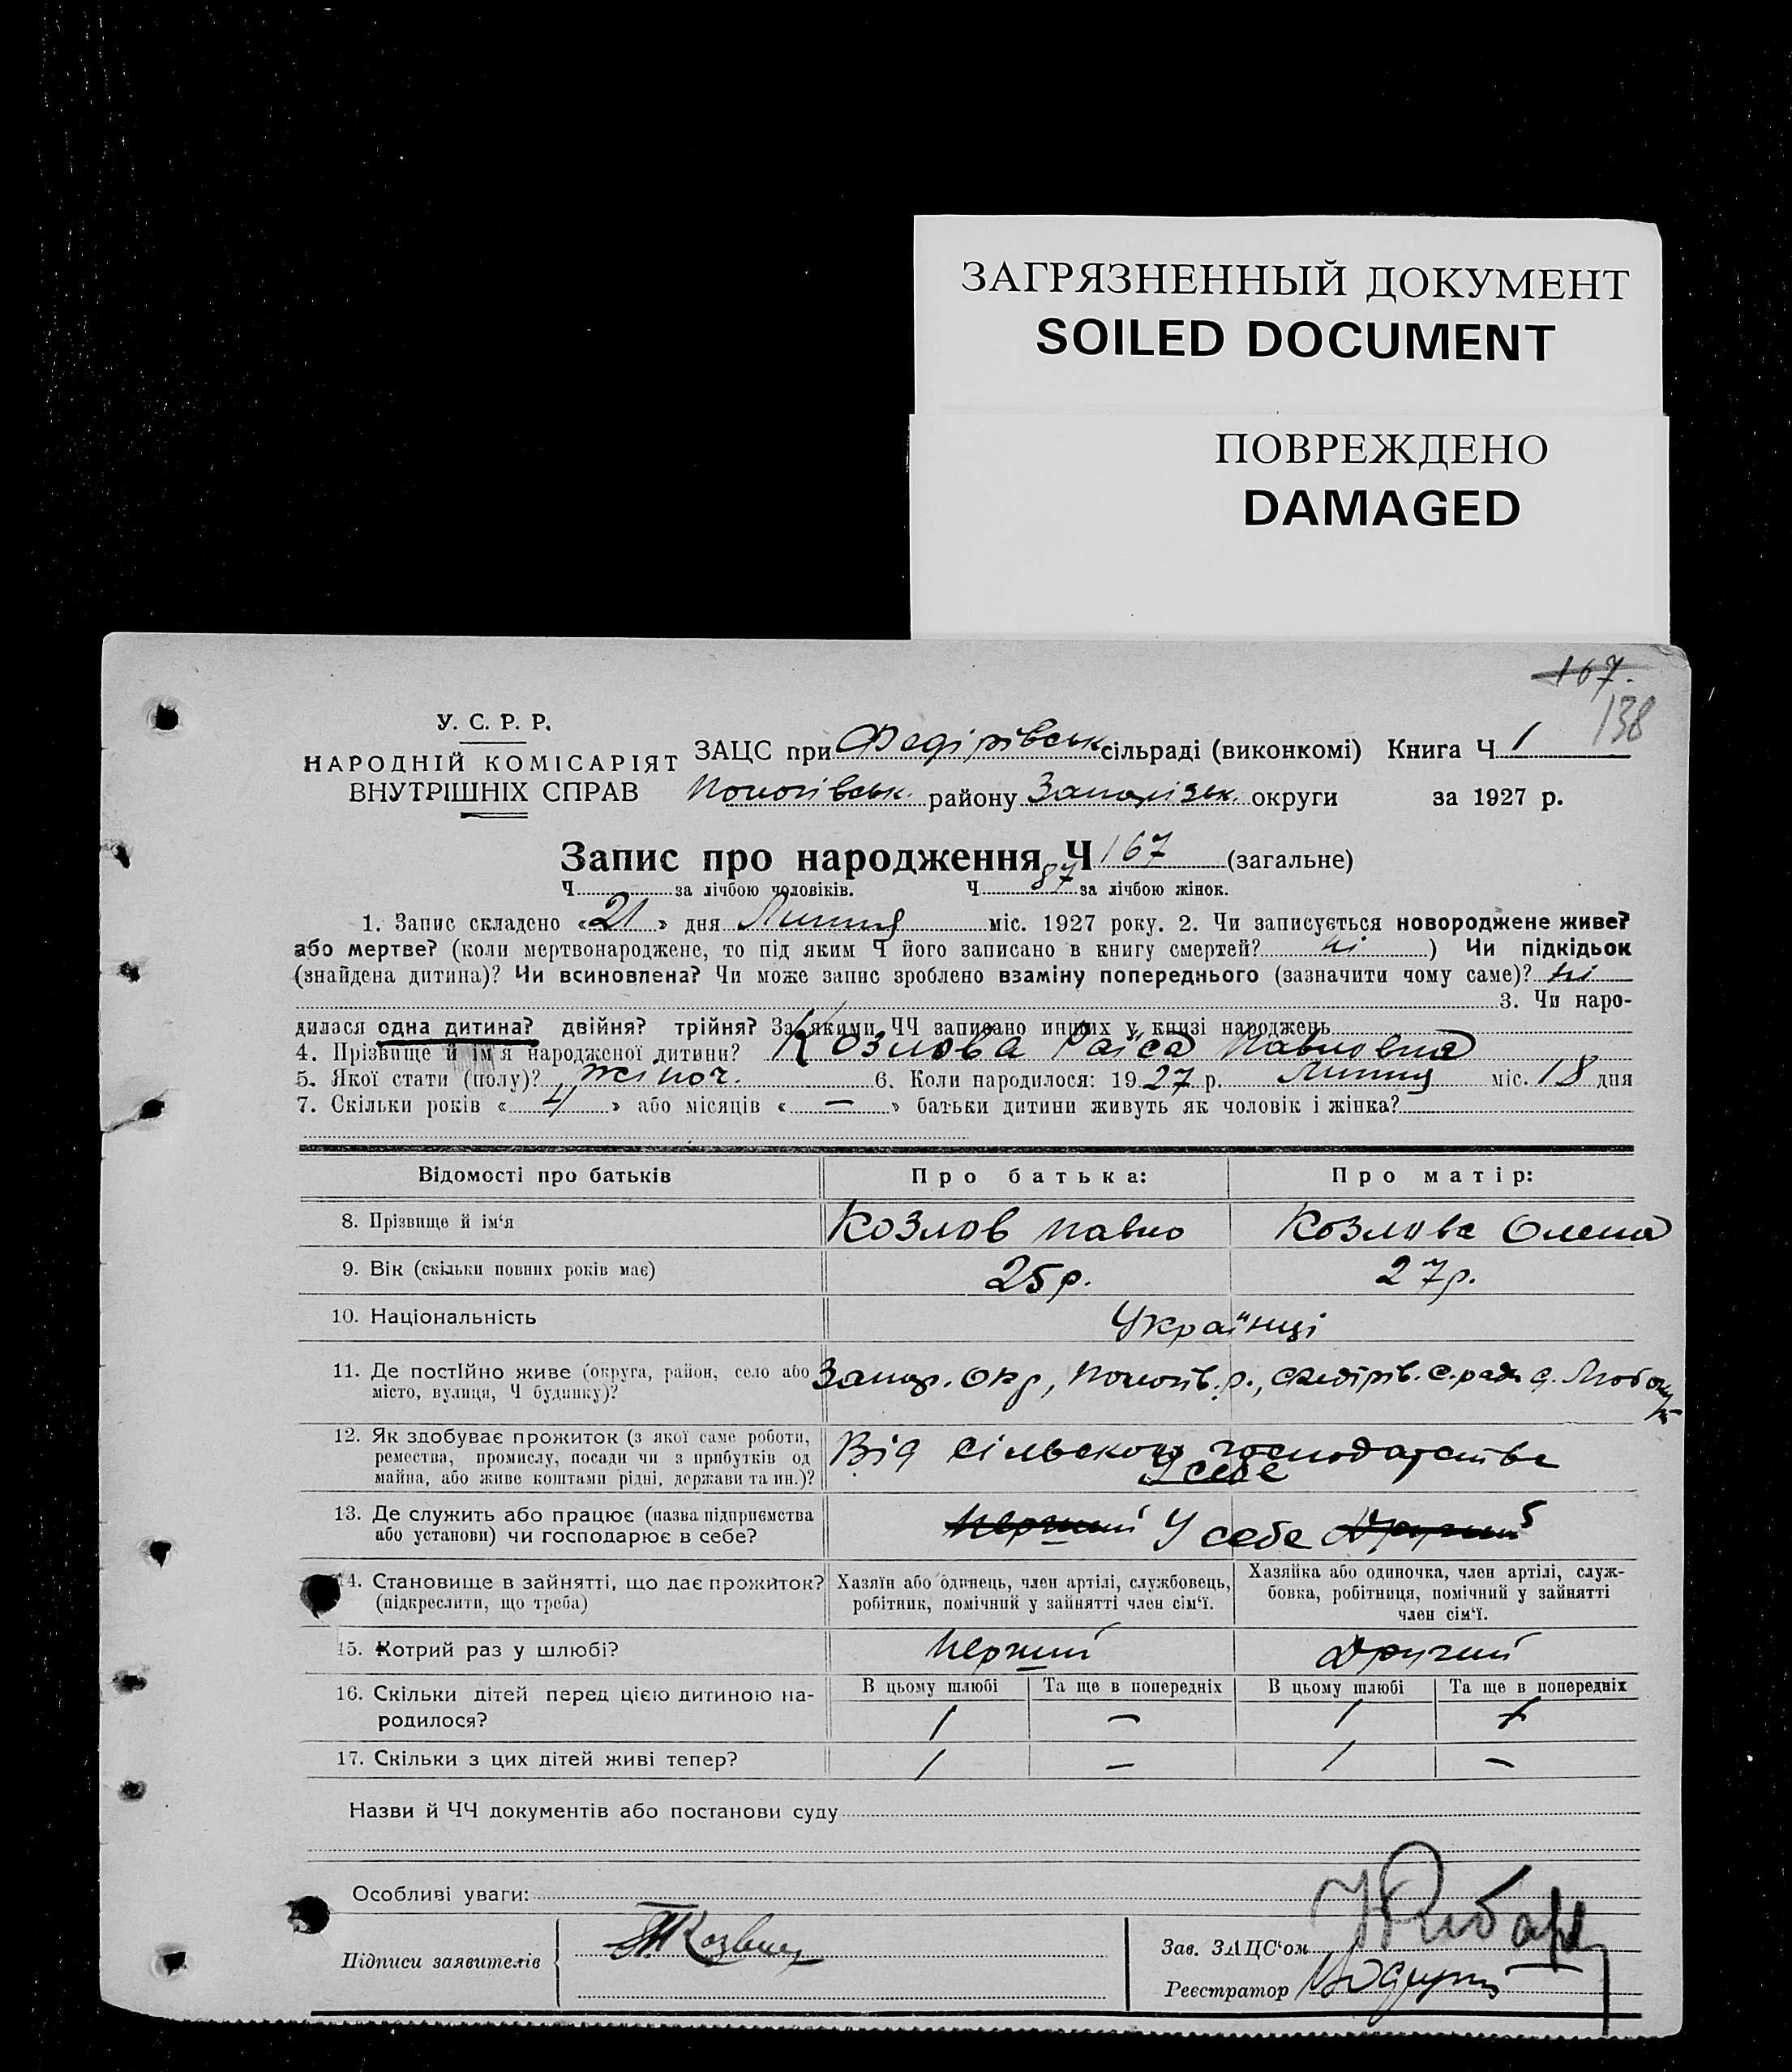 ЗАГРЯЗНЕННЫЙ ДОКУМЕНТ
SOILED DOCUMENT
ПОВРЕЖДЕНО
DAMAGED
167.
138
У. С. Р. Р.
НАРОДНІЙ КОМІСАРІЯТ
ВНУТРІШНІХ СПРАВ
ЗАЦС при Федірівськ сільраді (виконкомі) Книга Ч 1
Пологівськ. району Запорізьк. округи за 1927 р.
Запис про народження Ч 167 (загальне)
Ч за лічбою чоловіків. Ч 87 за лічбою жінок.
1. Запис складено «21» дня Липня міс. 1927 року. 2. Чи записується новороджене живе?
або мертве? (коли мертвонароджене, то під яким Ч його записано в книгу смертей? ні ) Чи підкідьок
(знайдена дитина)? Чи всиновлена? Чи може запис зроблено взаміну попереднього (зазначити чому саме)? ні
3. Чи наро-
дилася одна дитина? двійня? трійня? За якими ЧЧ записано инших у книзі народжень
4. Прізвище й ім'я народженої дитини? Козлова Раїса Павловна
5. Якої стати (полу)? жіноч. 6. Коли народилося: 1927 р. Липня міс. 18 дня
7. Скільки років « 4 » або місяців « — » батьки дитини живуть як чоловік і жінка?
Відомості про батьків Про батька: Про матір:
8. Прізвище й ім'я Козлов Павло Козлова Олена
9. Вік (скільки повних років має) 25 р. 27 р.
10. Національність Українці
11. Де постійно живе (округа, район, село або Запор. окр, Пологів. р., Федірів. с. рада
місто, вулиця, Ч будинку)?
12. Як здобуває прожиток (з якої саме роботи, Від сільского господарства
ремества, промислу, посади чи з прибутків од У себе
майна, або живе коштами рідні, держави та ин.)?
13. Де служить або працює (назва підприємства Перший У себе Другий
або установи) чи господарює в себе?
14. Становище в зайнятті, що дає прожиток? Хазяїн або одинець, член артілі, службовець, Хазяйка або одиночка, член артілі, служ-
(підкреслити, що треба) робітник, помічний у зайнятті член сім'ї. бовка, робітниця, помічний у зайнятті
член сім'ї.
15. Котрий раз у шлюбі? Перший Другий
16. Скільки дітей перед цією дитиною на- В цьому шлюбі Та ще в попередніх В цьому шлюбі Та ще в попередніх
родилося? 1 — 1
17. Скільки з цих дітей живі тепер? 1 — 1 —
Назви й ЧЧ документів або постанови суду
Особливі уваги:
Підписи заявителів
Зав. ЗАЦС'ом
Реєстратор